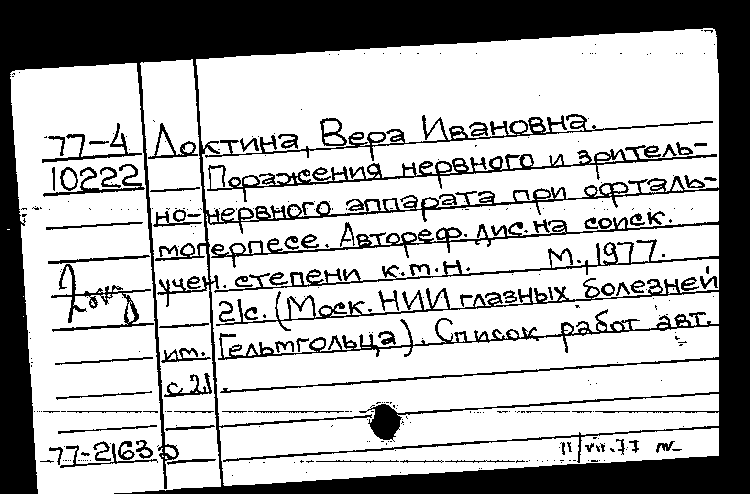 77-4 Локтина, Вера Ивановна.
10222 Поражения нервного и зритель-
но-нервного аппарата при офталь-
моперпесе. Автореф. дис. на соиск.
учен. степени к.т.н. М., 1977.
21с. (Моск. НИИ глазных болезней
им. Гельмгольца). Список работ авт.
с 21.
77-2163
11/VII.77